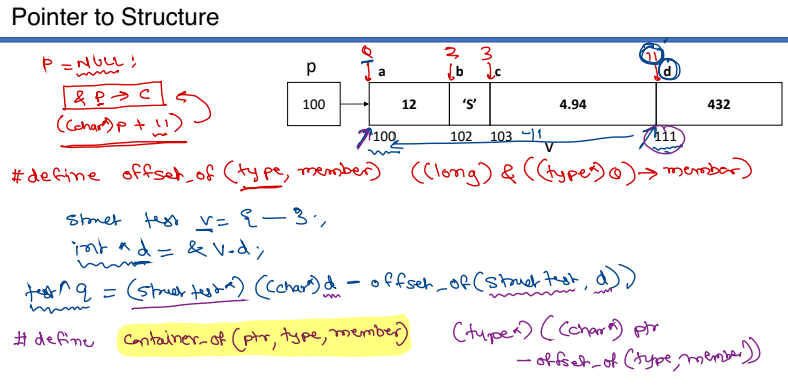 Pointer to Structure
p = NULL;
& p → c
((char*)p + 11)
p
100
0 2 3 11
a b c d
12 'S' 4.94 432
100 102 103 -11 111
v
#define offset_of (type, member) ((long) & ((type*) 0) → member)
struct test v = { — };
int * d = & v.d;
test * q = (struct test*) ((char*) d - offset_of (struct test, d))
#define container_of (ptr, type, member) (type*) ((char*) ptr
- offset_of (type, member))